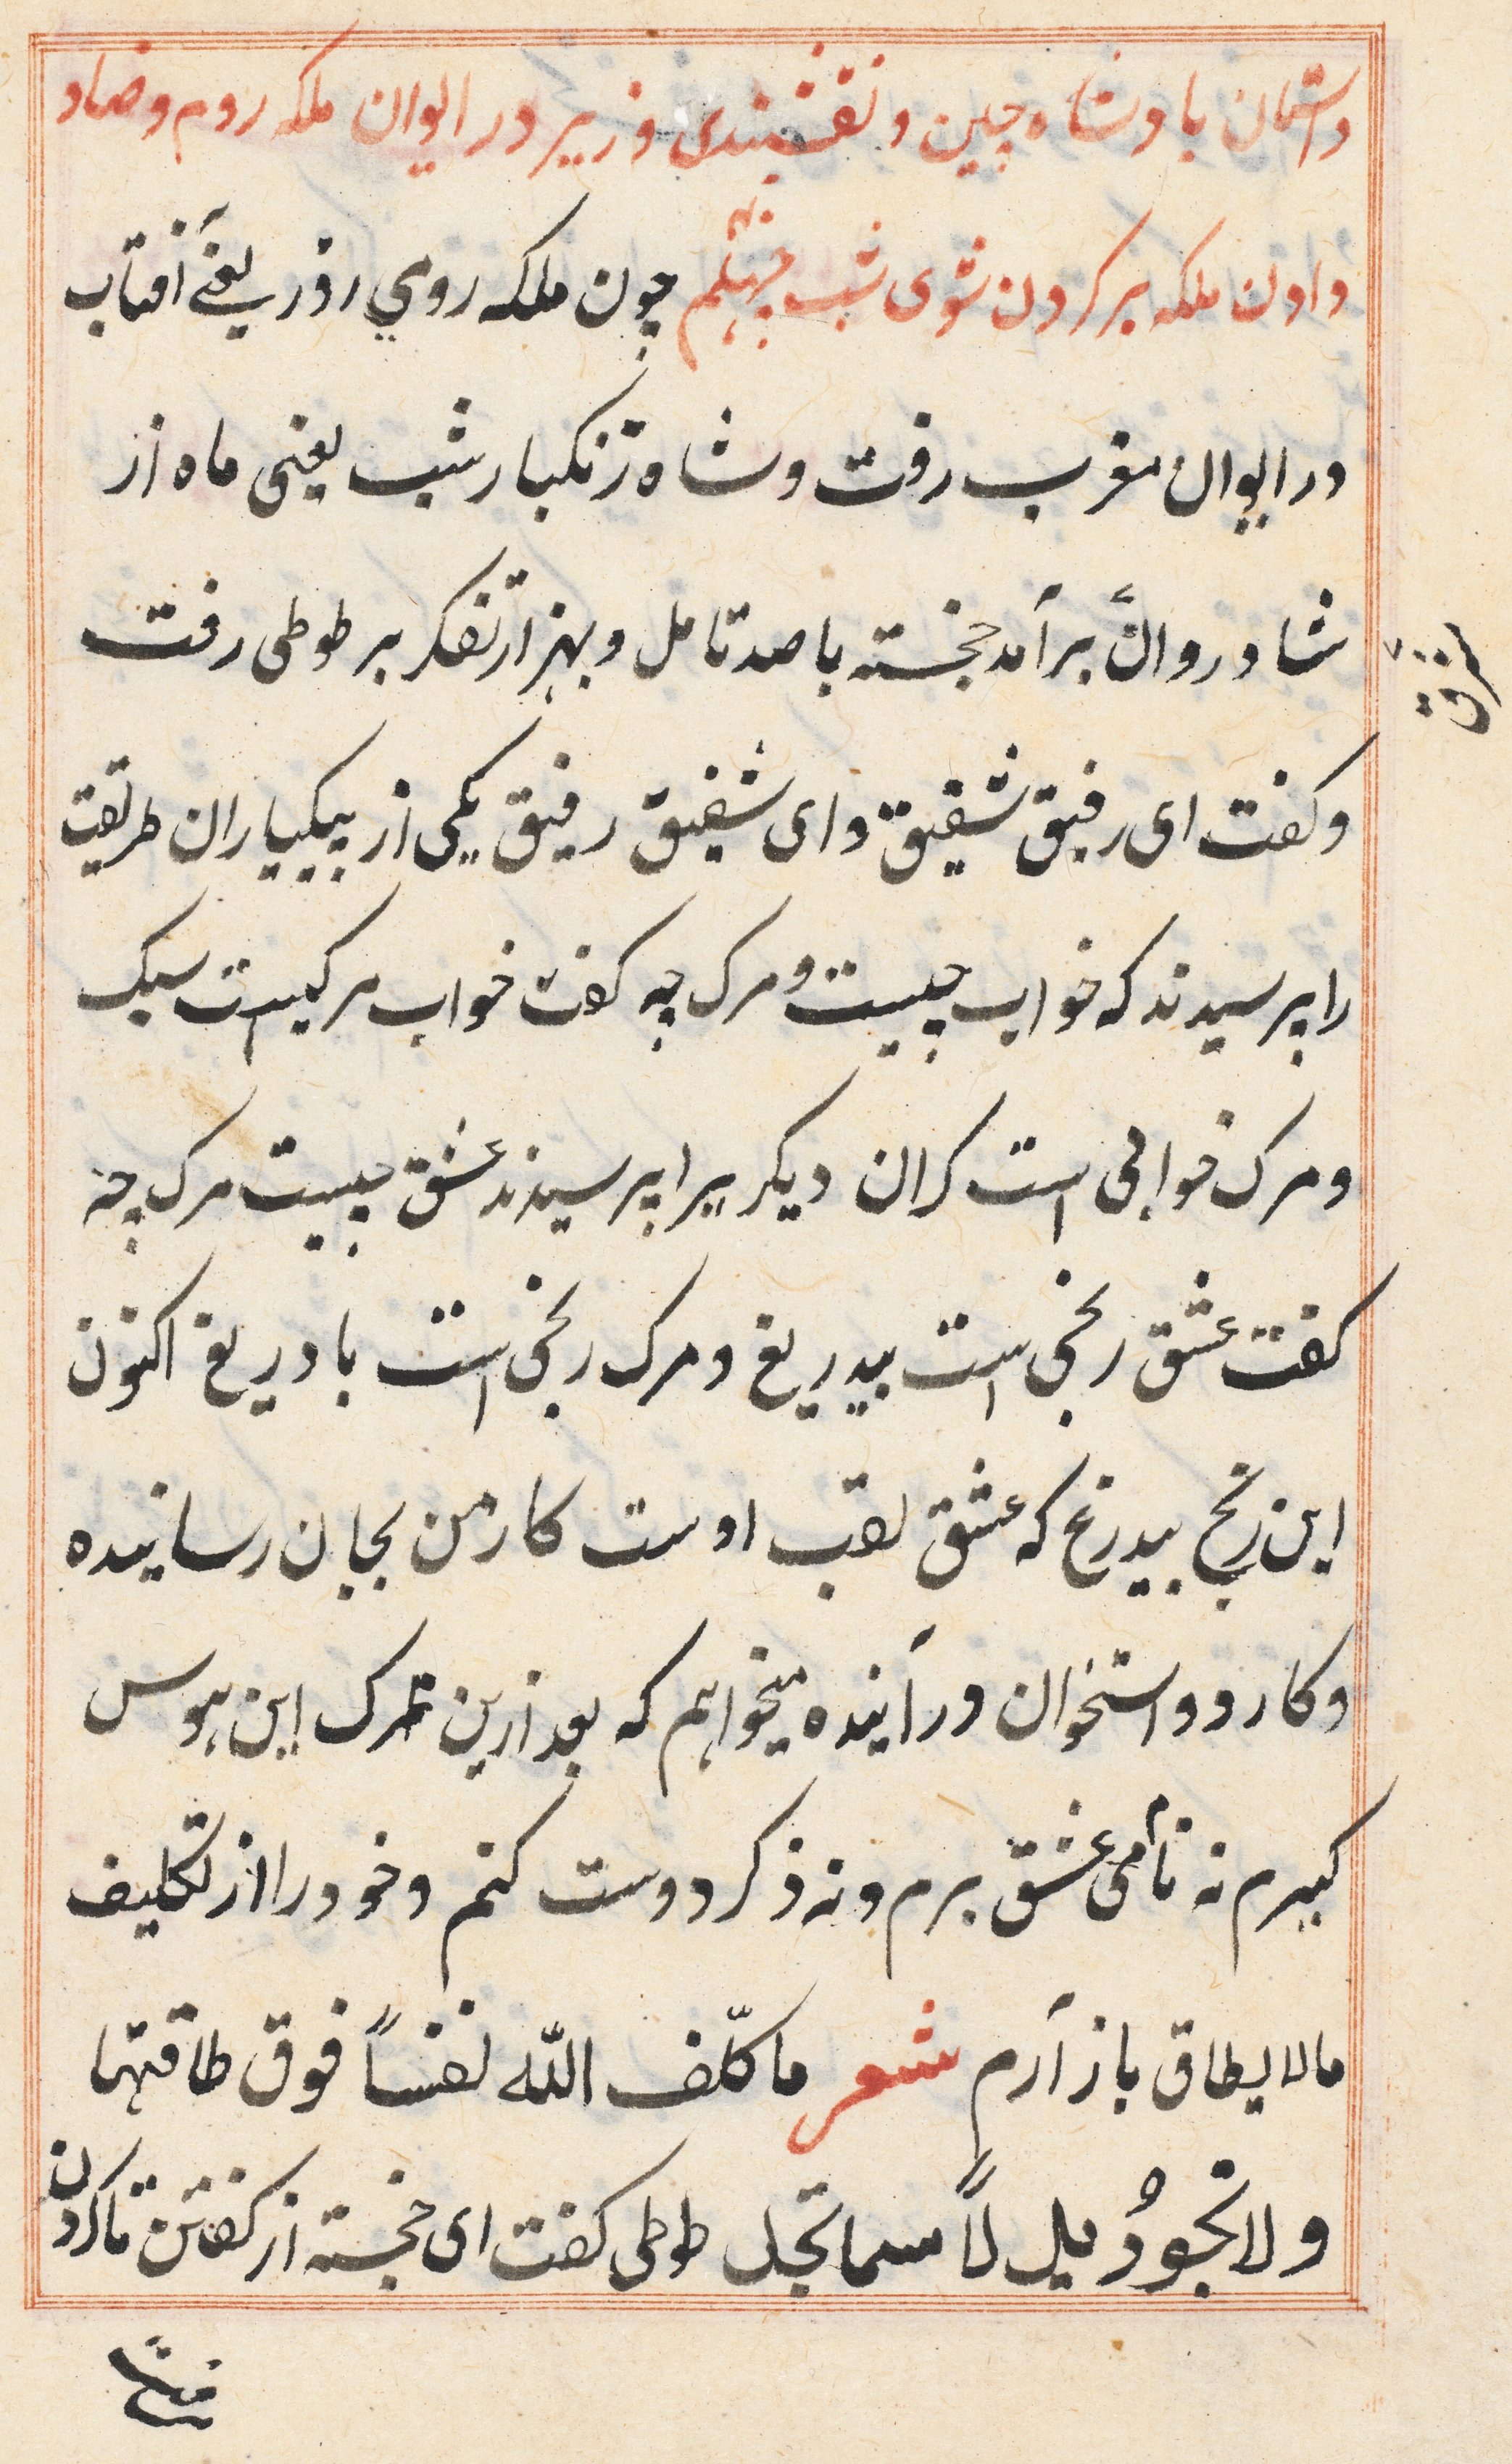 داستان بادشاه چین و نقشبندی وزیر در ایوان ملکه روم و رضا
دادن ملکه بر کردن شوی شب چهلم چون ملکه روی روز یعنی آفتاب
در ایوان مغرب رفت و شاه زنکبار شب یعنی ماه از
شادروان برآمد خجسته با صد تامل و بهزار تفکر بر طوطی رفت
و کفت ای رفیق شفیق و ای شفیق رفیق یکی از پیکیاران طریقت
را پرسیدند که خواب چیست و مرک چه کفت خواب مرکیست سبک
و مرک خوابی است کران دیکریرا پرسیدند عشق چیست مرک چه
کفت عشق رنجی است بیدریغ و مرک رنجی است با دریغ اکنون
این رنج بیدرغ که عشق لقب اوست کار من بجان رسانیده
و کارد و استخوان در آینده میخواهم که بعد ازین ترک این هوس
کیرم نه نام عشق برم و نه ذکر دوست کنم و خود را از تکلیف
مالا یطاق باز آرم شعر ما کلّف الله نفساً فوق طاقتها
ولا تجود ید لاً سما تجد طوطی کفت ای خجسته از کفتن تا کردن